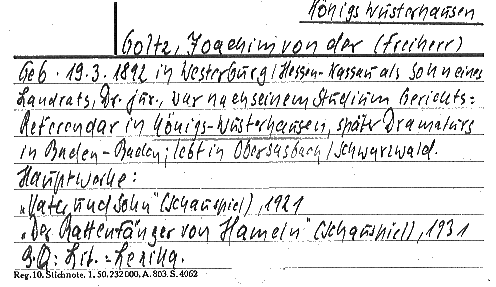 Königs Wusterhausen
Goltz, Joachim von der (Freiherr)
Geb. 19.3.1892 in Westerburg/Hessen-Nassau als Sohn eines
Landrats, Dr. jur., war nach seinem Studium Gerichts=
Referendar in Königs-Wusterhausen, später Dramaturg
in Baden-Baden; lebt in Obersasbach/Schwarzwald.
Hauptwerke:
„Vater und Sohn" (Schauspiel), 1921
„Der Rattenfänger von Hameln" (Schauspiel), 1931
Lit.-Lexikon.
Reg. 10. Stichnote. 1. 50. 232 000. A. 803. S. 4062